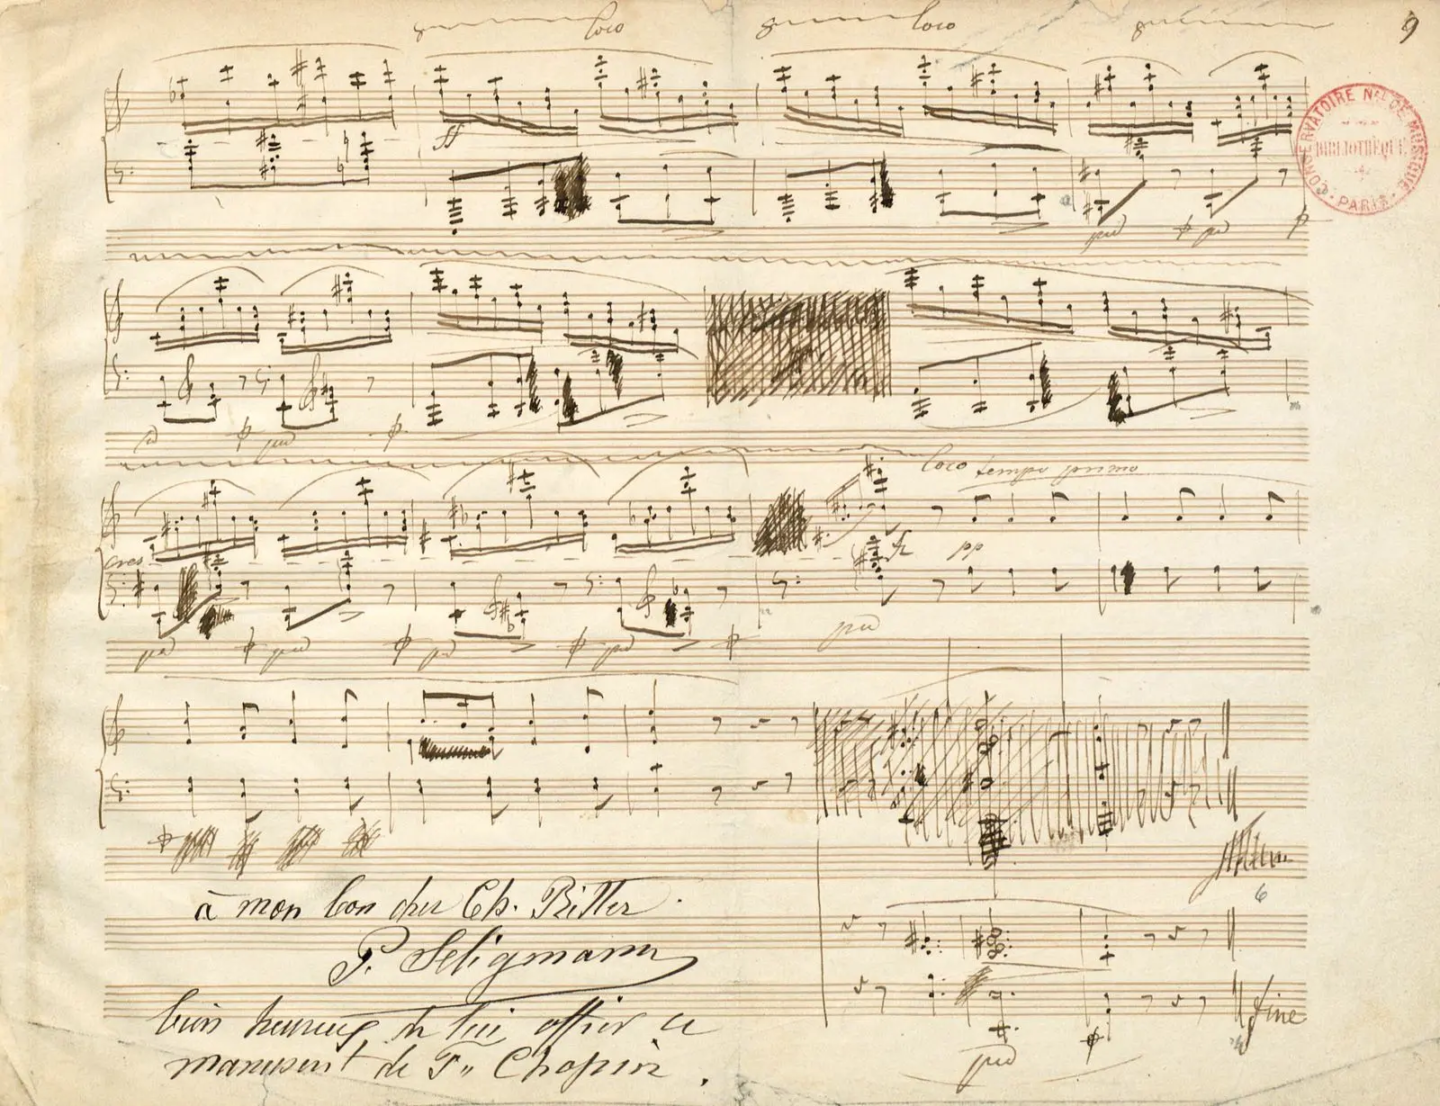 8 loco 8 loco 8 9
CONSERVATOIRE NAL DE MUSIQUE
BIBLIOTHÈQUE
PARIS
ff
ped ped
ped
loco tempo primo
cres
fz pp
ped ped ped ped ped
6
à mon bon cher Ch. Ritter.
P. Seligmann
bien heureux de lui offrir ce
manuscrit de F. Chopin.
fine
ped